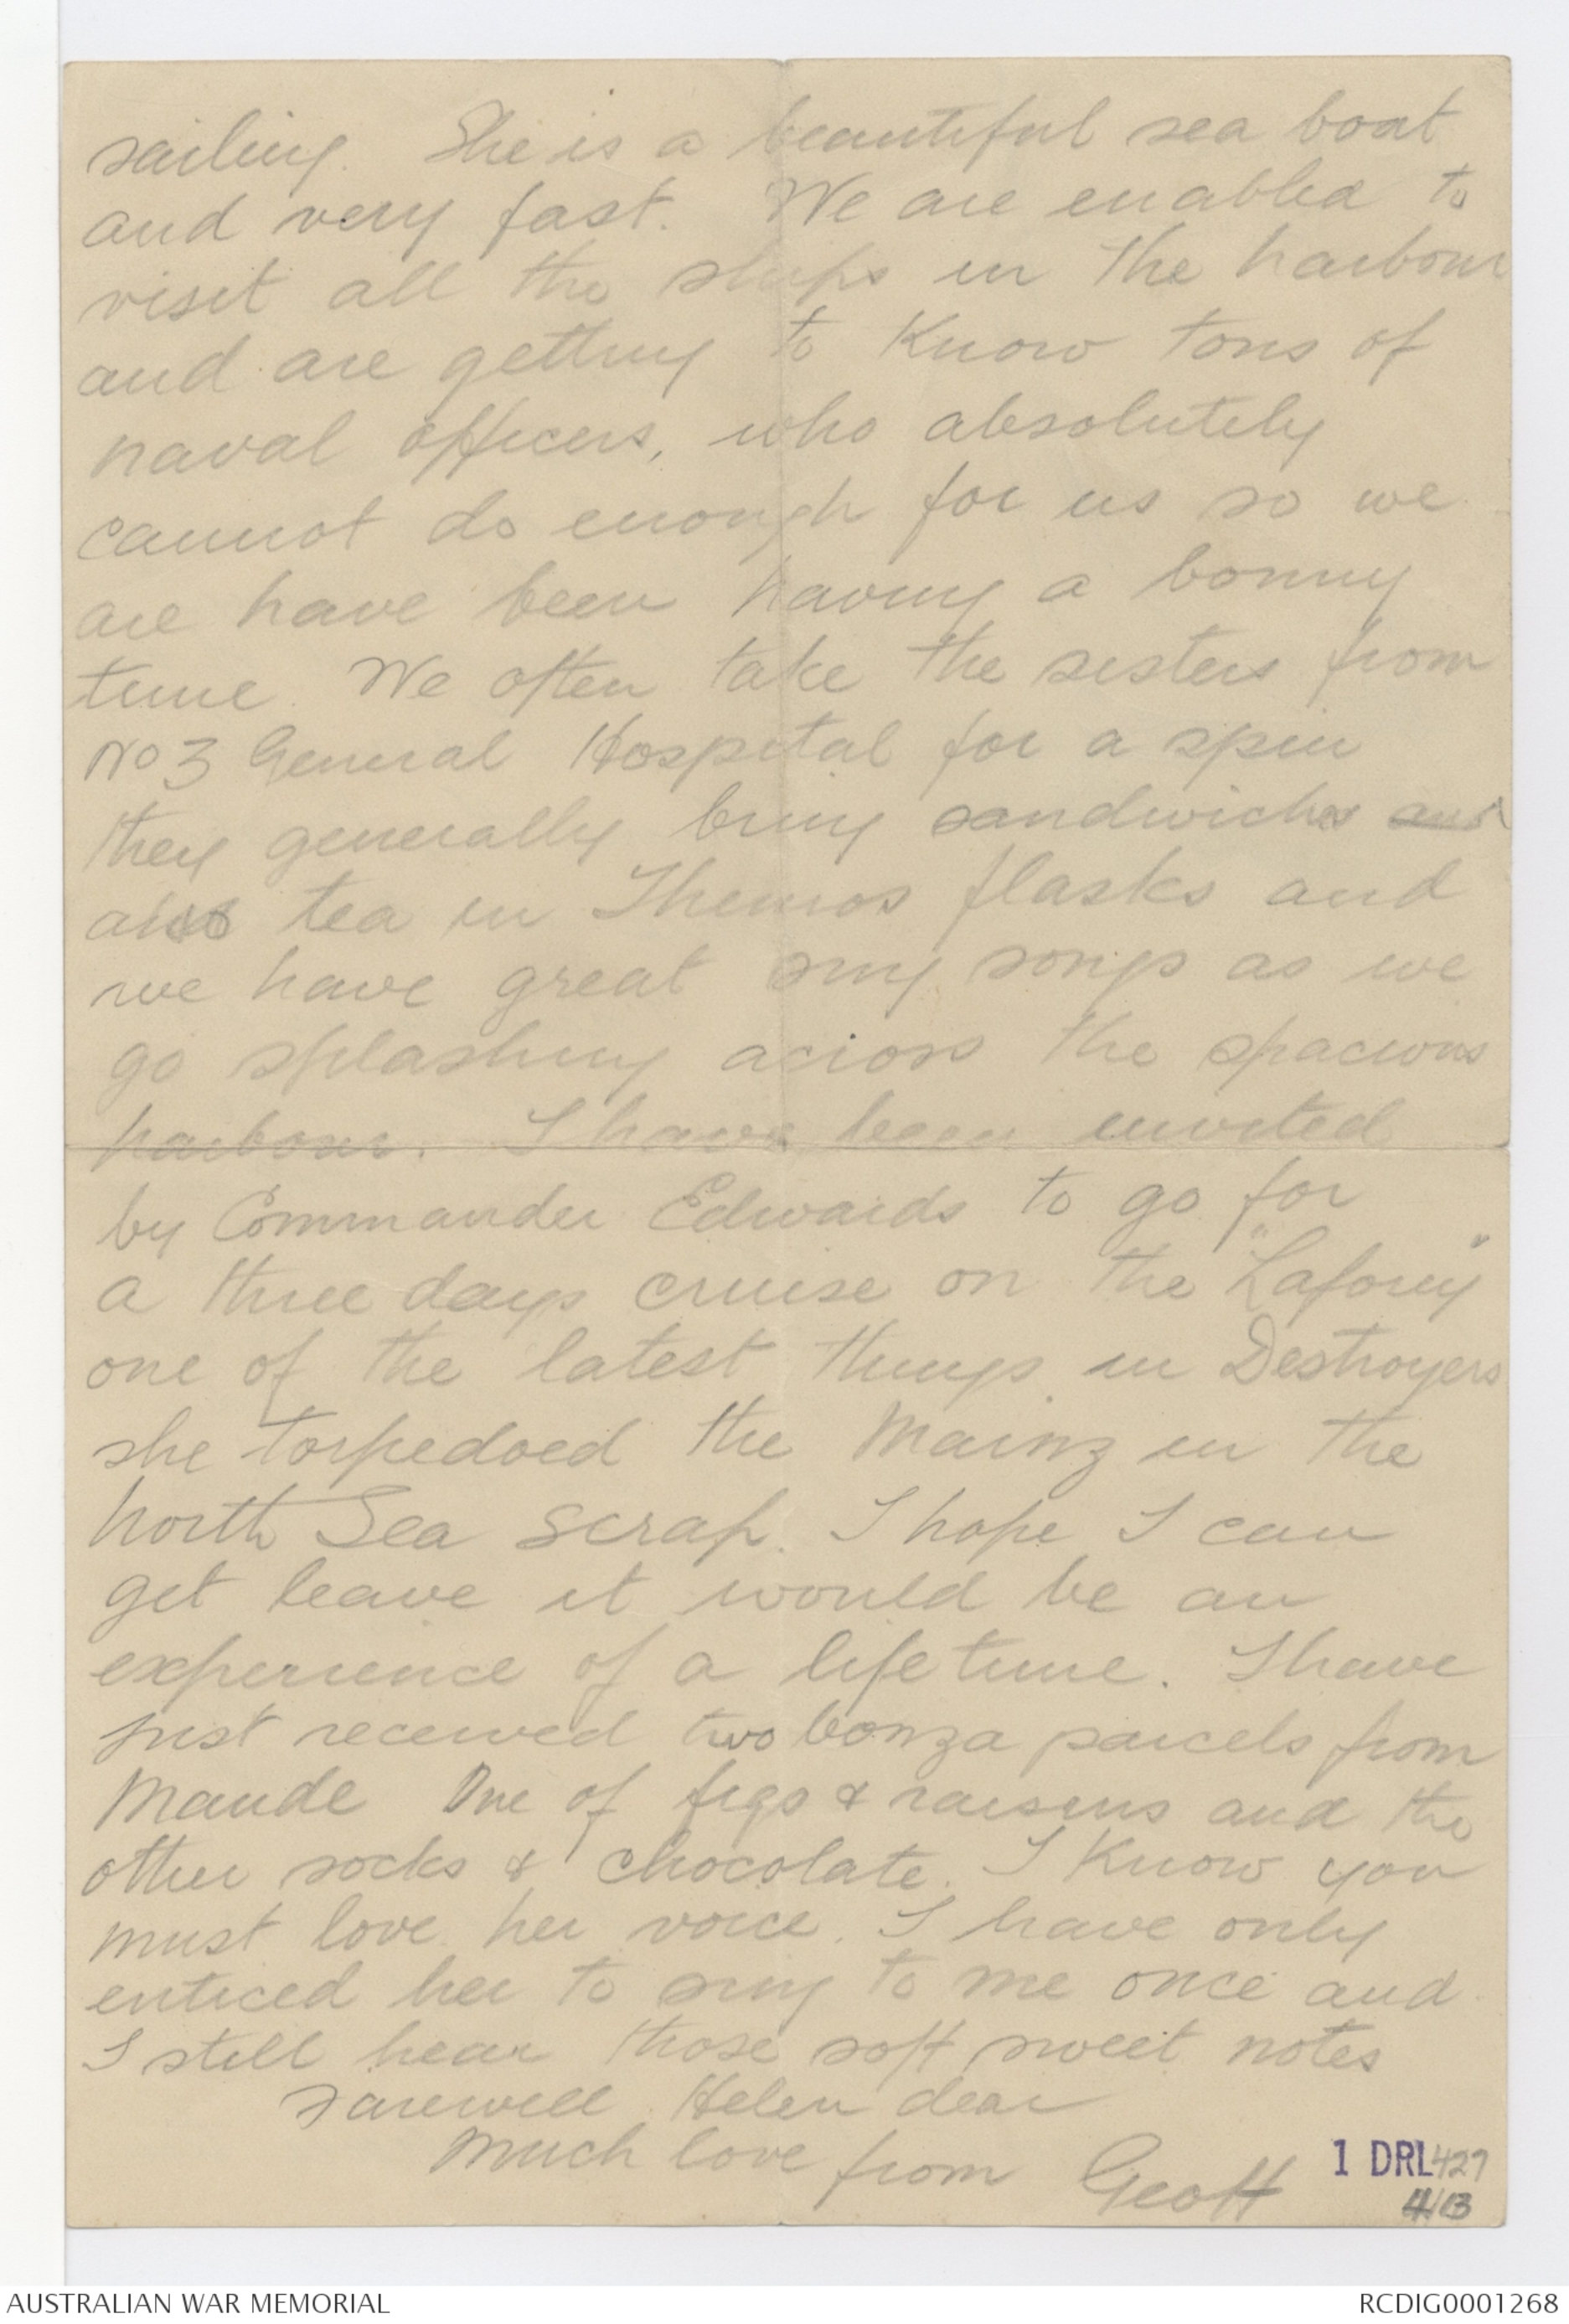 sailing. She is a beautiful sea boat
and very fast. We are enabled to
visit all the ships in the harbour
and are getting to know tons of
naval officers, who absolutely
cannot do enough for us so we
are have been having a bonny
time. We often take the sisters from
No 3 General Hospital for a spin
they generally bring sandwiches and
also tea in Themos flasks and
we have great sing songs as we
go splashing across the spacious
harbour. I have been invited
by Commander Edwards to go for
a three days cruise on the "Laforey"
one of the latest things in Destroyers
she torpedoed the Mainz in the
North Sea scrap. I hope I can
get leave it would be an
experience of a life time. I have
just received two bonza parcels from
Maude One of figs & raisins and the
other socks & chocolate. I know you
must love her voice. I have only
enticed her to sing to me once and
I still hear those soft sweet notes
Farewell Helen dear
Much love from Geoff
1 DRL 427
4/13
AUSTRALIAN WAR MEMORIAL
RCDIG0001268